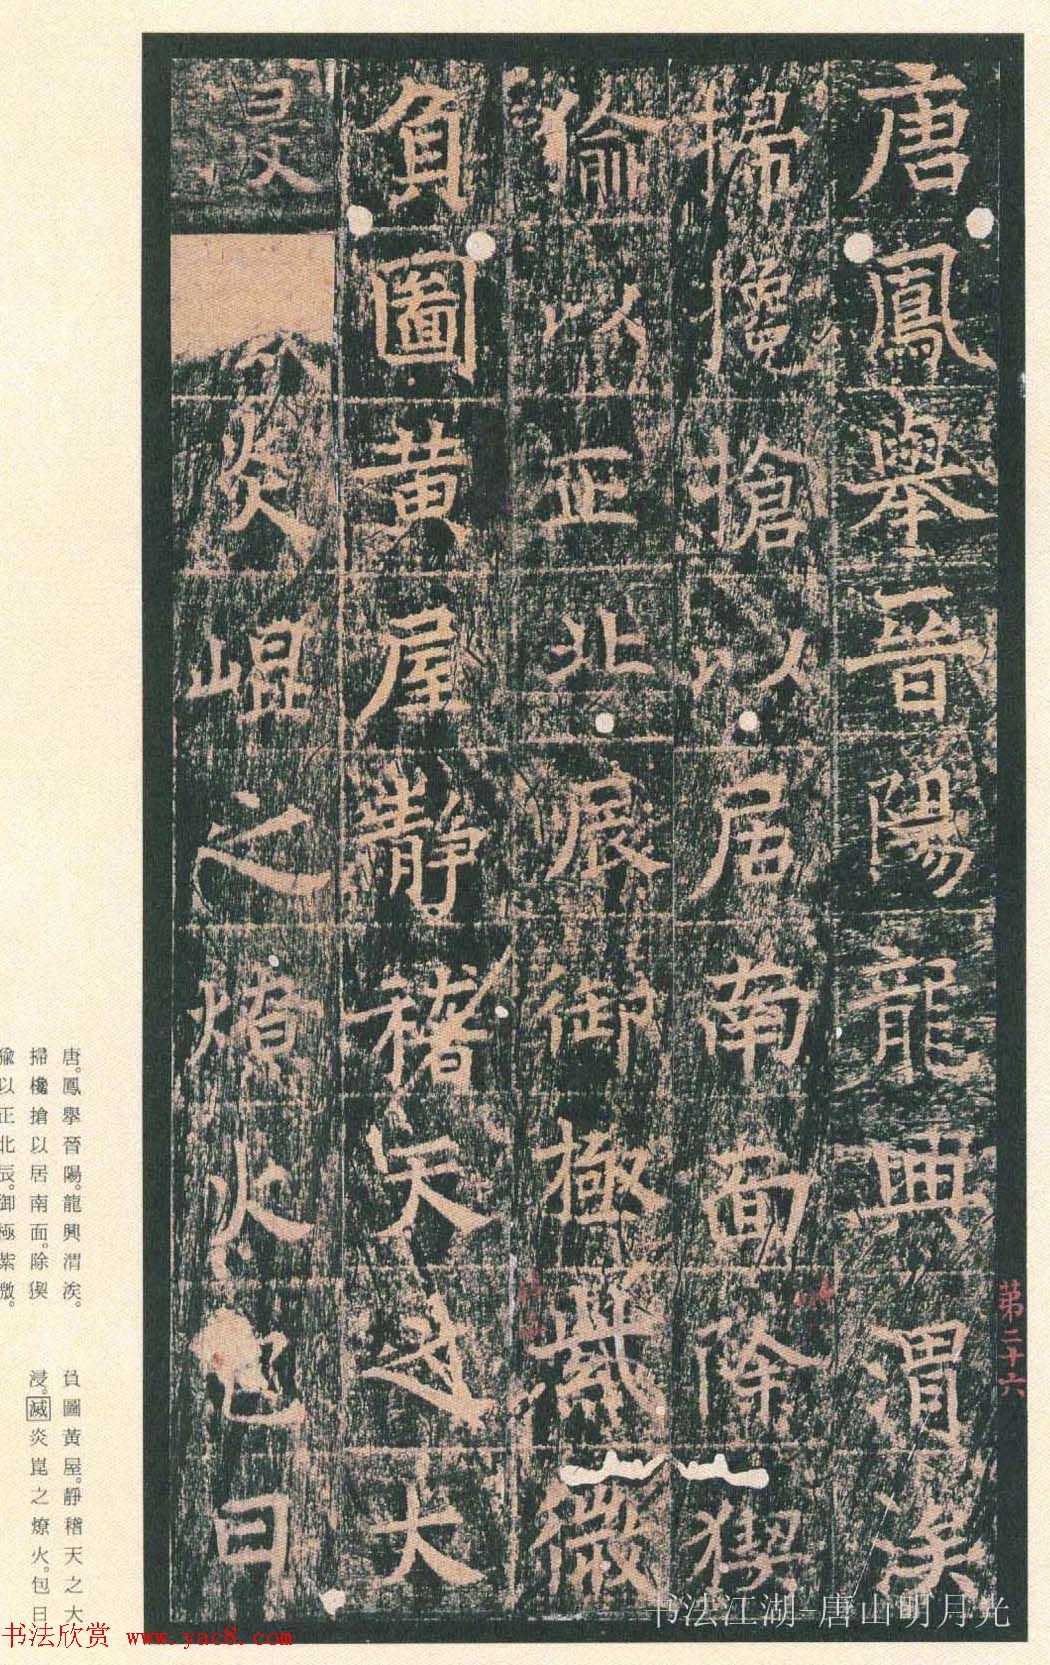 唐鳳舉晉陽龍興渭涘
掃欃搶以居南面除猰
貐以正北辰御極紫微
負圖黃屋靜稽天之大
浸
炎崐之燎火包日
第二十六
唐。鳳舉晉陽。龍興渭涘。
掃欃搶以居南面。除猰
貐以正北辰。御極紫微。
負圖黃屋。靜稽天之大
浸。滅炎崑之燎火。包日
书法江湖-唐山明月光
书法欣赏 www.yac8.com